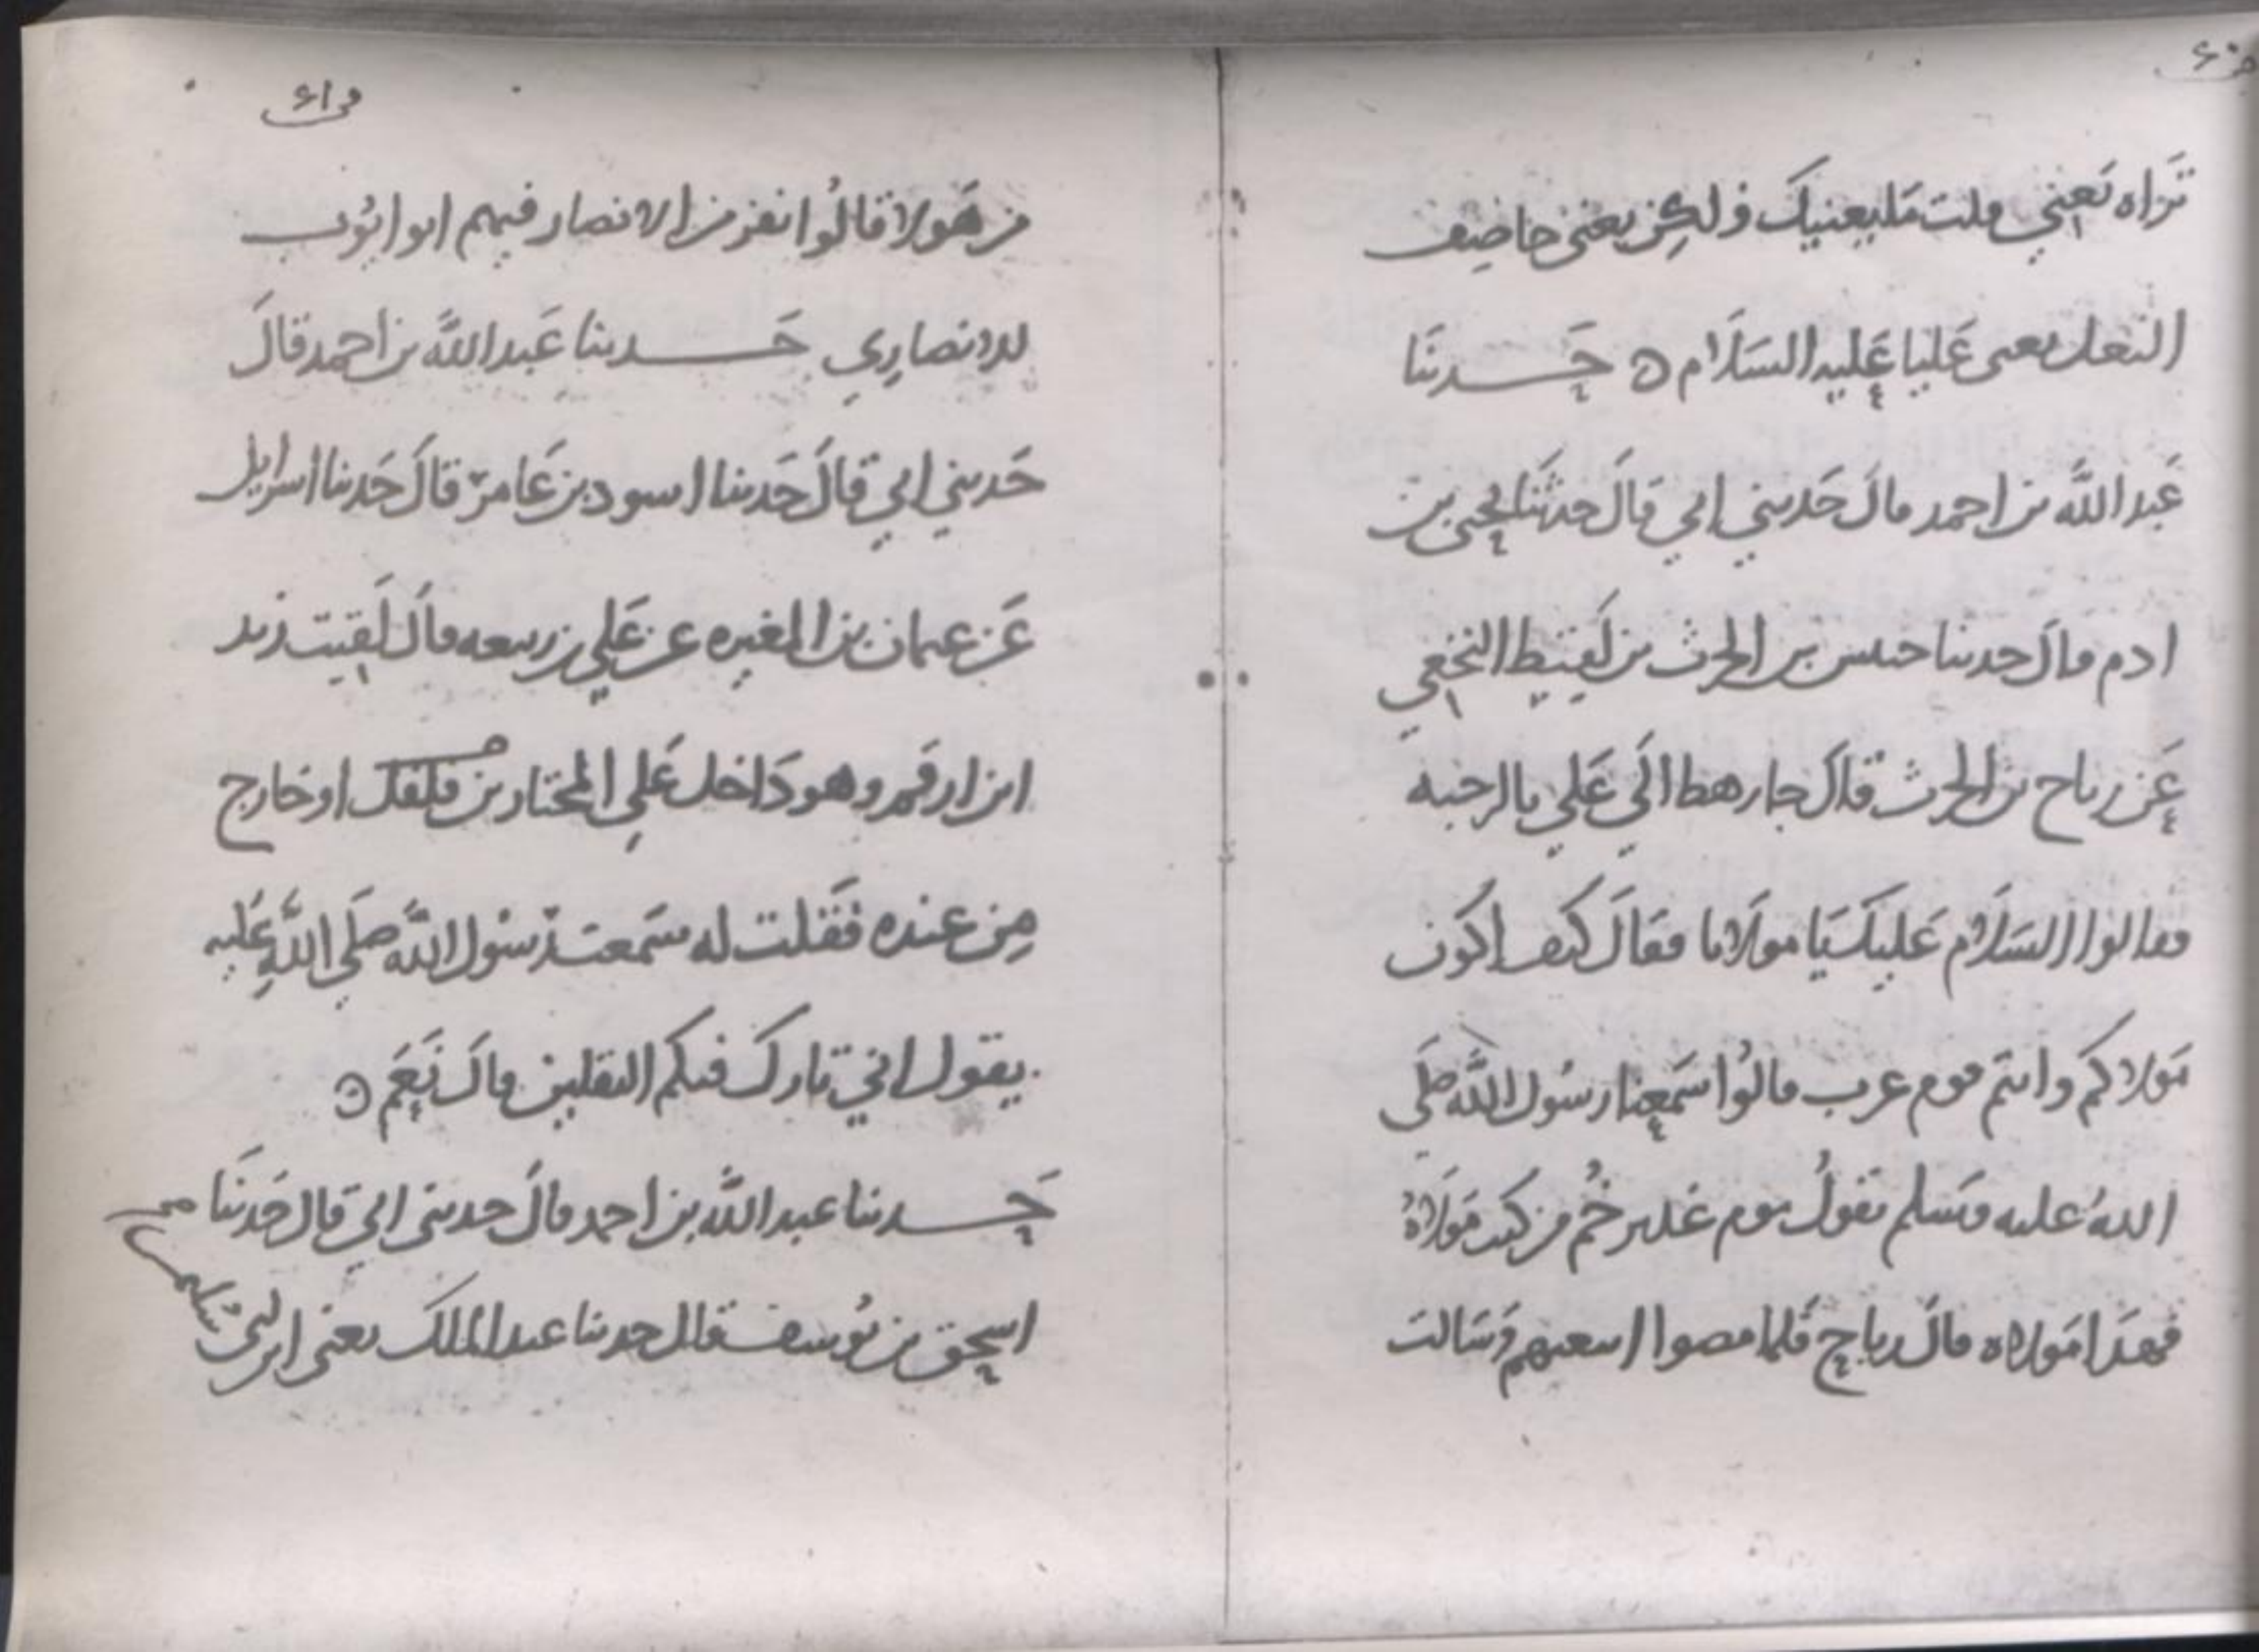 تراه يعني قلت ما يعنيك ولكن يعني خاصف
النعل يعنى عليا عليه السلام ه حدثنا
عبد الله بن احمد قال حدثني ابي قال حدثنا يحيى بن
ادم قال حدثنا حنش بن الحرث بن لقيط النخعي
عن رباح بن الحرث قال جا رهط الي علي بالرحبه
فقالوا السلام عليك يا مولانا فقال كيف اكون
مولاكم وانتم قوم عرب قالوا سمعنا رسول الله صلى
الله عليه وسلم يقول يوم غدير خم من كنت مولاه
فهذا مولاه قال رباح فلما مضوا اتبعتهم وسالت
من هولا قالوا نفر من الانصار فيهم ابو ايوب
الانصاري حدثنا عبد الله بن احمد قال
حدثني ابي قال حدثنا اسود بن عامر قال حدثنا اسرايل
عن عثمان بن المغيره عن علي بن ربيعه قال لقيت زيد
ابن ارقم وهو داخل علي المختار من فلفل او خارج
من عنده فقلت له سمعت رسول الله صلي الله عليه
يقول اني تارك فيكم الثقلين قال نعم ه
حدثنا عبد الله بن احمد قال حدثنى ابي قال حدثنا
اسحق بن يوسف قال حدثنا عبد الملك يعنى ابن ابي سليمن